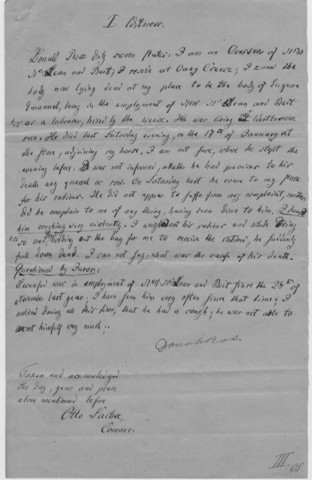 I Witness.
Donald Ross duly sworn states: I am an Overseer of Messrs
McLean and Beit; I reside at Oaky Creek; I know the
body now lying dead at my place to be the body of Eugene
Emanuel, being in the employment of Messrs McLean and Beit
as a labourer, hired by the week. He was living at Westbrook
run. He died last Saturday evening, on the 17th of January at
the store, adjoining my house. I am not sure, where he slept the
evening before. I was not informed, whether he had previous to his
death any quarrel or row. On Saturday last he come to my place
for his rations. He did not appear to suffer from any complaint, neither
did he complain to me of any thing, having been done to him. I heard
him coughing very violently. I weighed out his rations and while doing
so and holding out the bag for me to receive the rations, he suddenly
fell down dead. I can not say what was the cause of his death.
Questioned by Juror:
Deceased was in employment of Messrs McLean and Beit since the 28th of
October last year; I have seen him very often since that time; I
noticed during all this time, that he had a cough; he was not able to
exert himself very much.
Taken and acknowledged
the day, year and place
above mentioned before
Otto Sachse,
Coroner.
III.